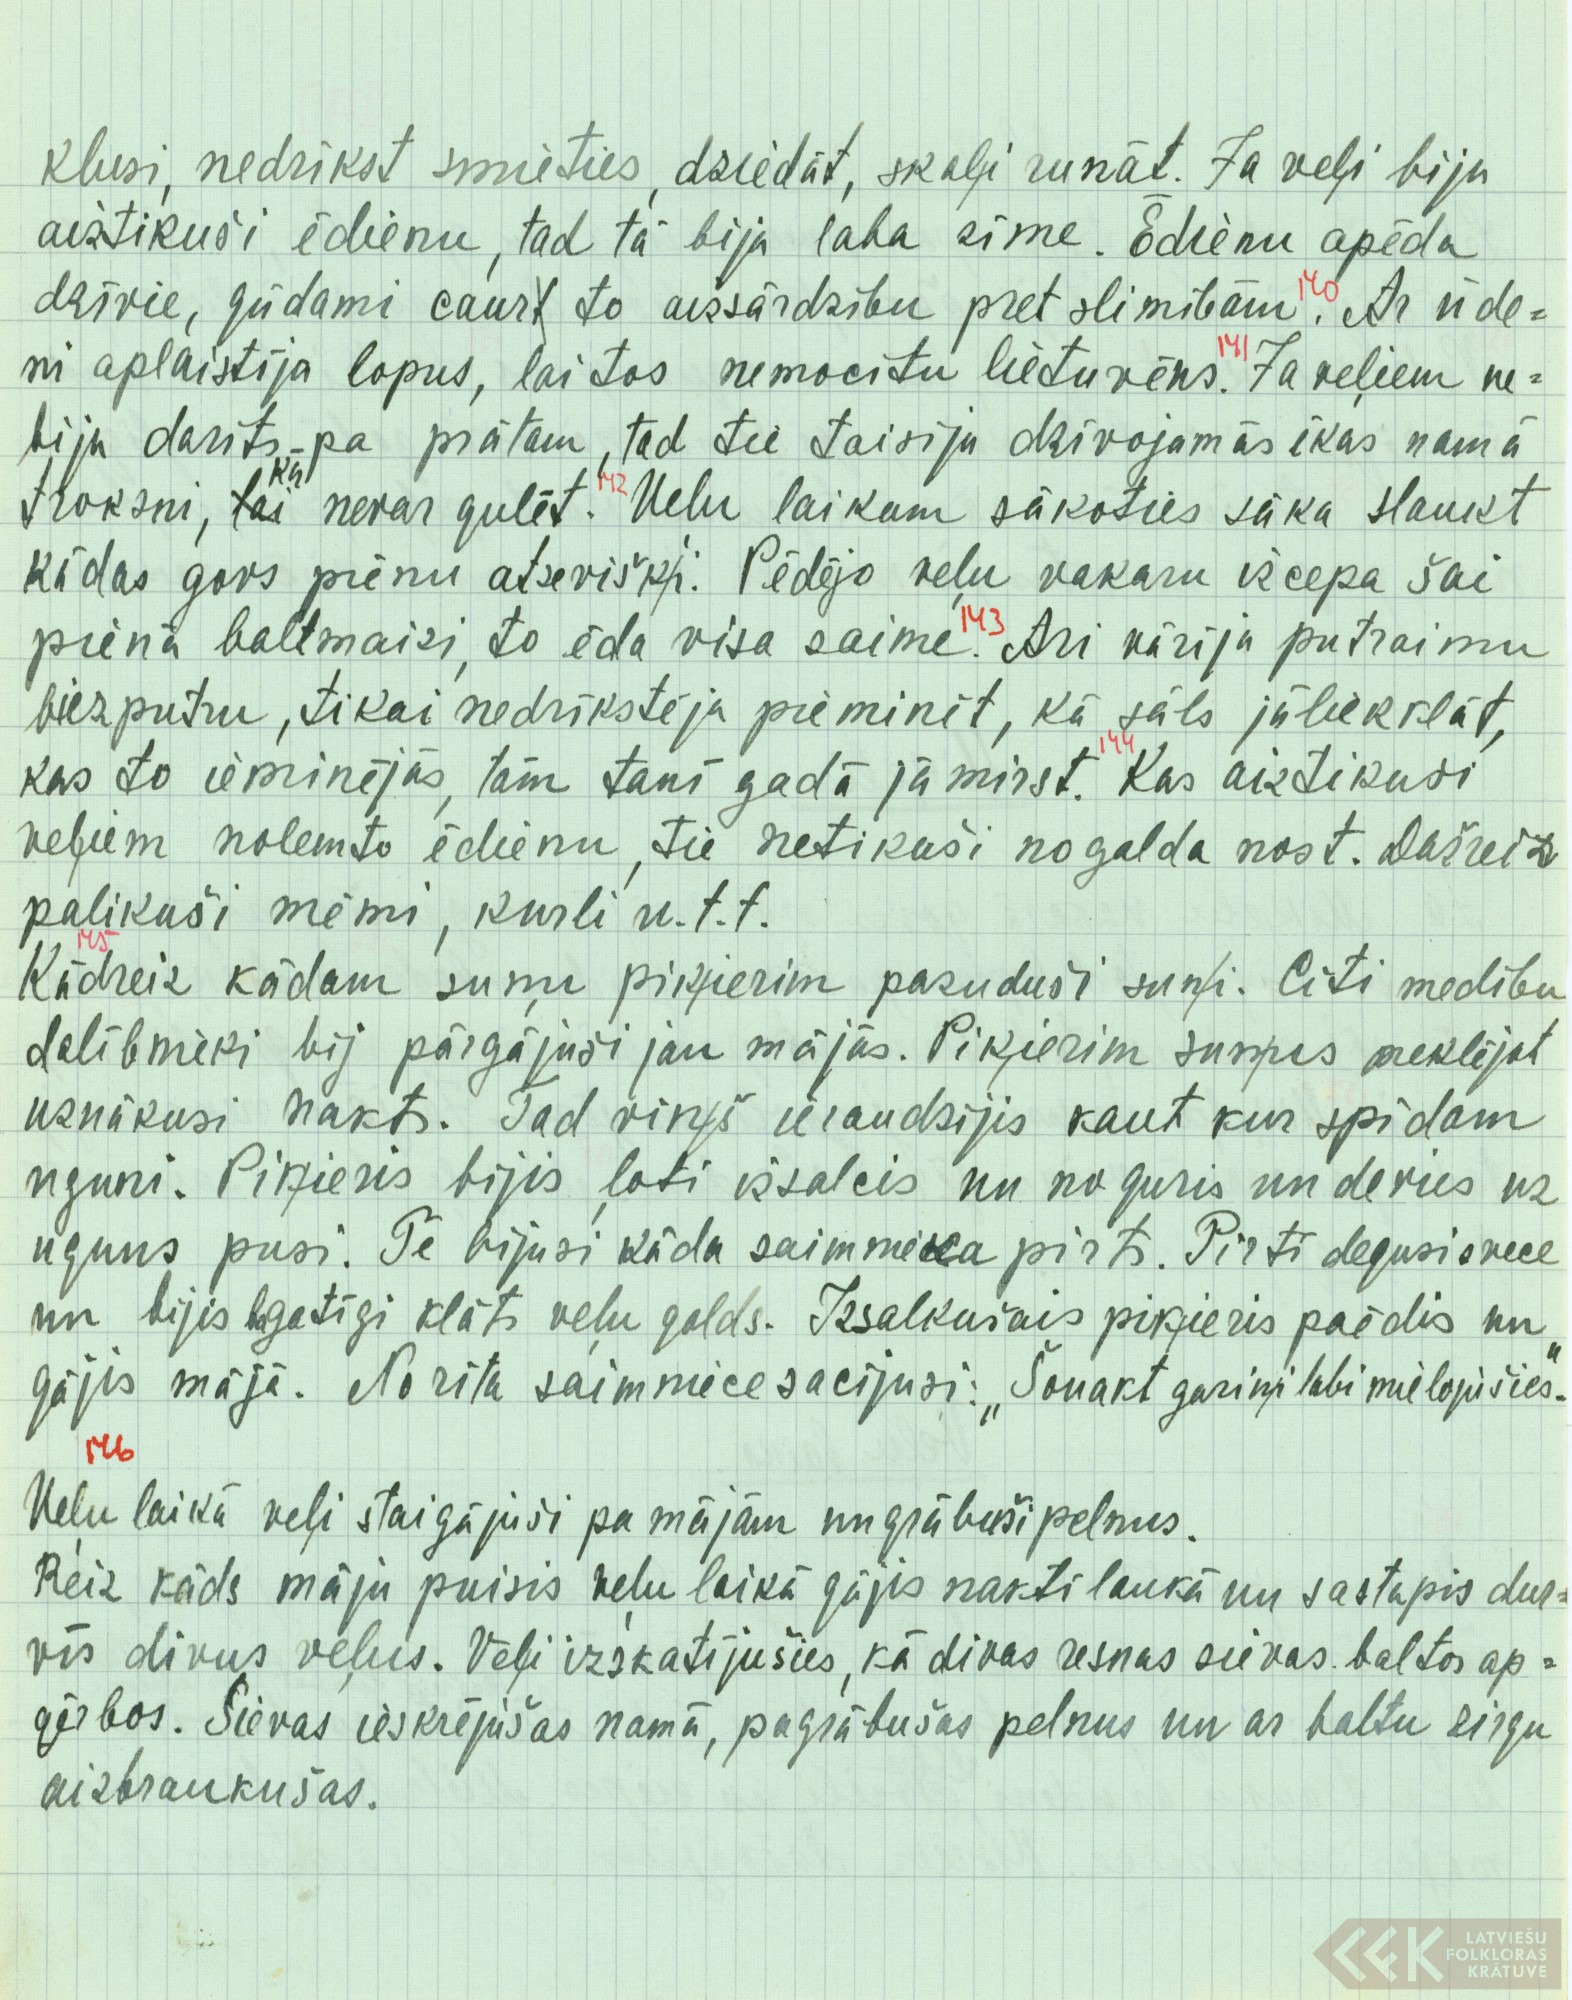 klusi, nedrīkst smieties, dziedāt, skaļi runāt. Ja veļi bija
aiztikuši ēdienu, tad tā bija laba zīme. Ēdienu apēda
dzīvie, gūdami caur to aizsārdzību pret slimībām. 140 Ar ūde=
ni aplaistīja lopus, lai tos nemocītu lietuvēns. 141 Ja veļiem ne=
bija darīts pa prātam, tad tie taisīja dzīvojamās ēkas namā
troksni, lai kā nevar gulēt. 142 Veļu laikam sākoties sāka slaukt
kādas govs pienu atseviškķi. Pēdējo veļu vakaru izcepa šai
pienā baltmaizi, to ēda visa saime. 143 Ari vārīja putraimu
biezputru, tikai nedrīkstēja pieminēt, kā sāls jāliek klāt,
kas to ieminējās, tam tanī gadā jāmirst. 144 Kas aiztikuši
veļiem nolemto ēdienu, tie netikuši no galda nost. Dažreiz
palikuši mēmi, kurli u.t.t.
145
Kādreiz kādam suņu piķierim pazuduši suņi. Citi medību
dalībnieki bij pārgājuši jau mājās. Piķierim suņus meklējot
uznākusi nakts. Tad viņš ieraudzījis kaut kur spīdam
uguni. Piķieris bijis ļoti izsalcis un noguris un devies uz
uguns pusi. Te bijusi kāda saimnieka pirts. Pirtī degusi svece
un bijis bagatīgi klāts veļu galds. Izsalkušais piķieris paēdis un
gājis mājā. No rīta saimniece sacījusi: „Šonakt gariņi labi mielojušies."
146
Veļu laikā veļi staigājuši pa mājām un grābuši pelnus.
Reiz kāds māju puisis veļu laikā gājis naktī laukā un sastapis dur=
vīs divus veļus. Veļi izskatījušies, kā divas resnas sievas baltos ap=
gērbos. Sievas ieskrējušas namā, pagrābušas pelnus un ar baltu zirgu
aizbraukušas.
LATVIEŠU
FOLKLORAS
KRĀTUVE